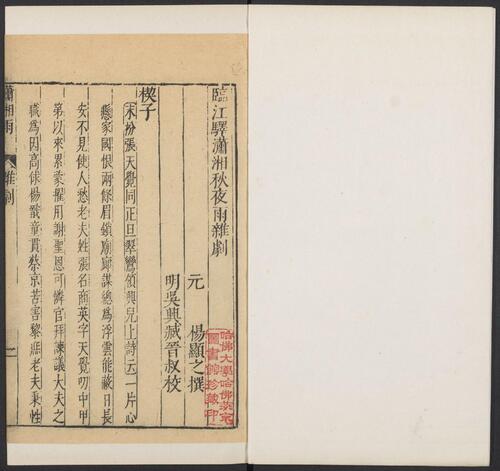 臨江驛瀟湘秋夜雨雜劇
元 楊顯之撰
明吳興臧晉叔校
楔子
末扮張天覺同正旦翠鸞領興兒上詩云一片心
懸家國恨兩條眉鎖廟廊謀總爲浮雲能蔽日長
安不見使人愁老夫姓張名商英字天覺叨中甲
第以來累蒙擢用謝聖恩可憐官拜諫議大夫之
職爲因高俅楊戩童貫蔡京苦害黎民老夫秉性
瀟湘雨 雜劇 一
哈佛大學哈佛燕京
圖書館珍藏印